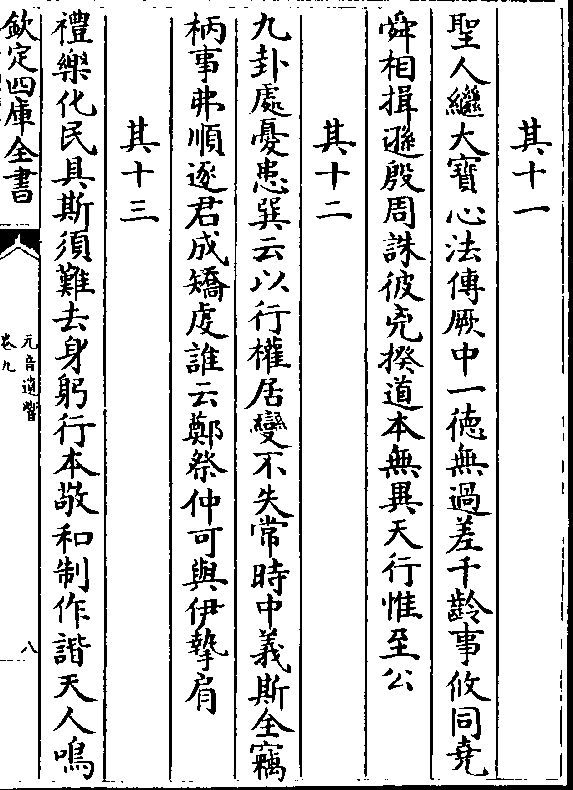 其十一
聖人繼大寶心法傳厥中一徳無過差千齡事攸同堯
舜相揖遜殷周誅彼兇揆道本無異天行惟至公
其十二
九卦處憂患巽云以行權居變不失常時中義斯全竊
柄事弗順逐君成矯虔誰云鄭祭仲可與伊摯肩
其十三
禮樂化民具斯須難去身躬行本敬和制作諧天人鳴
欽定四庫全書
元音遺響
卷九
八